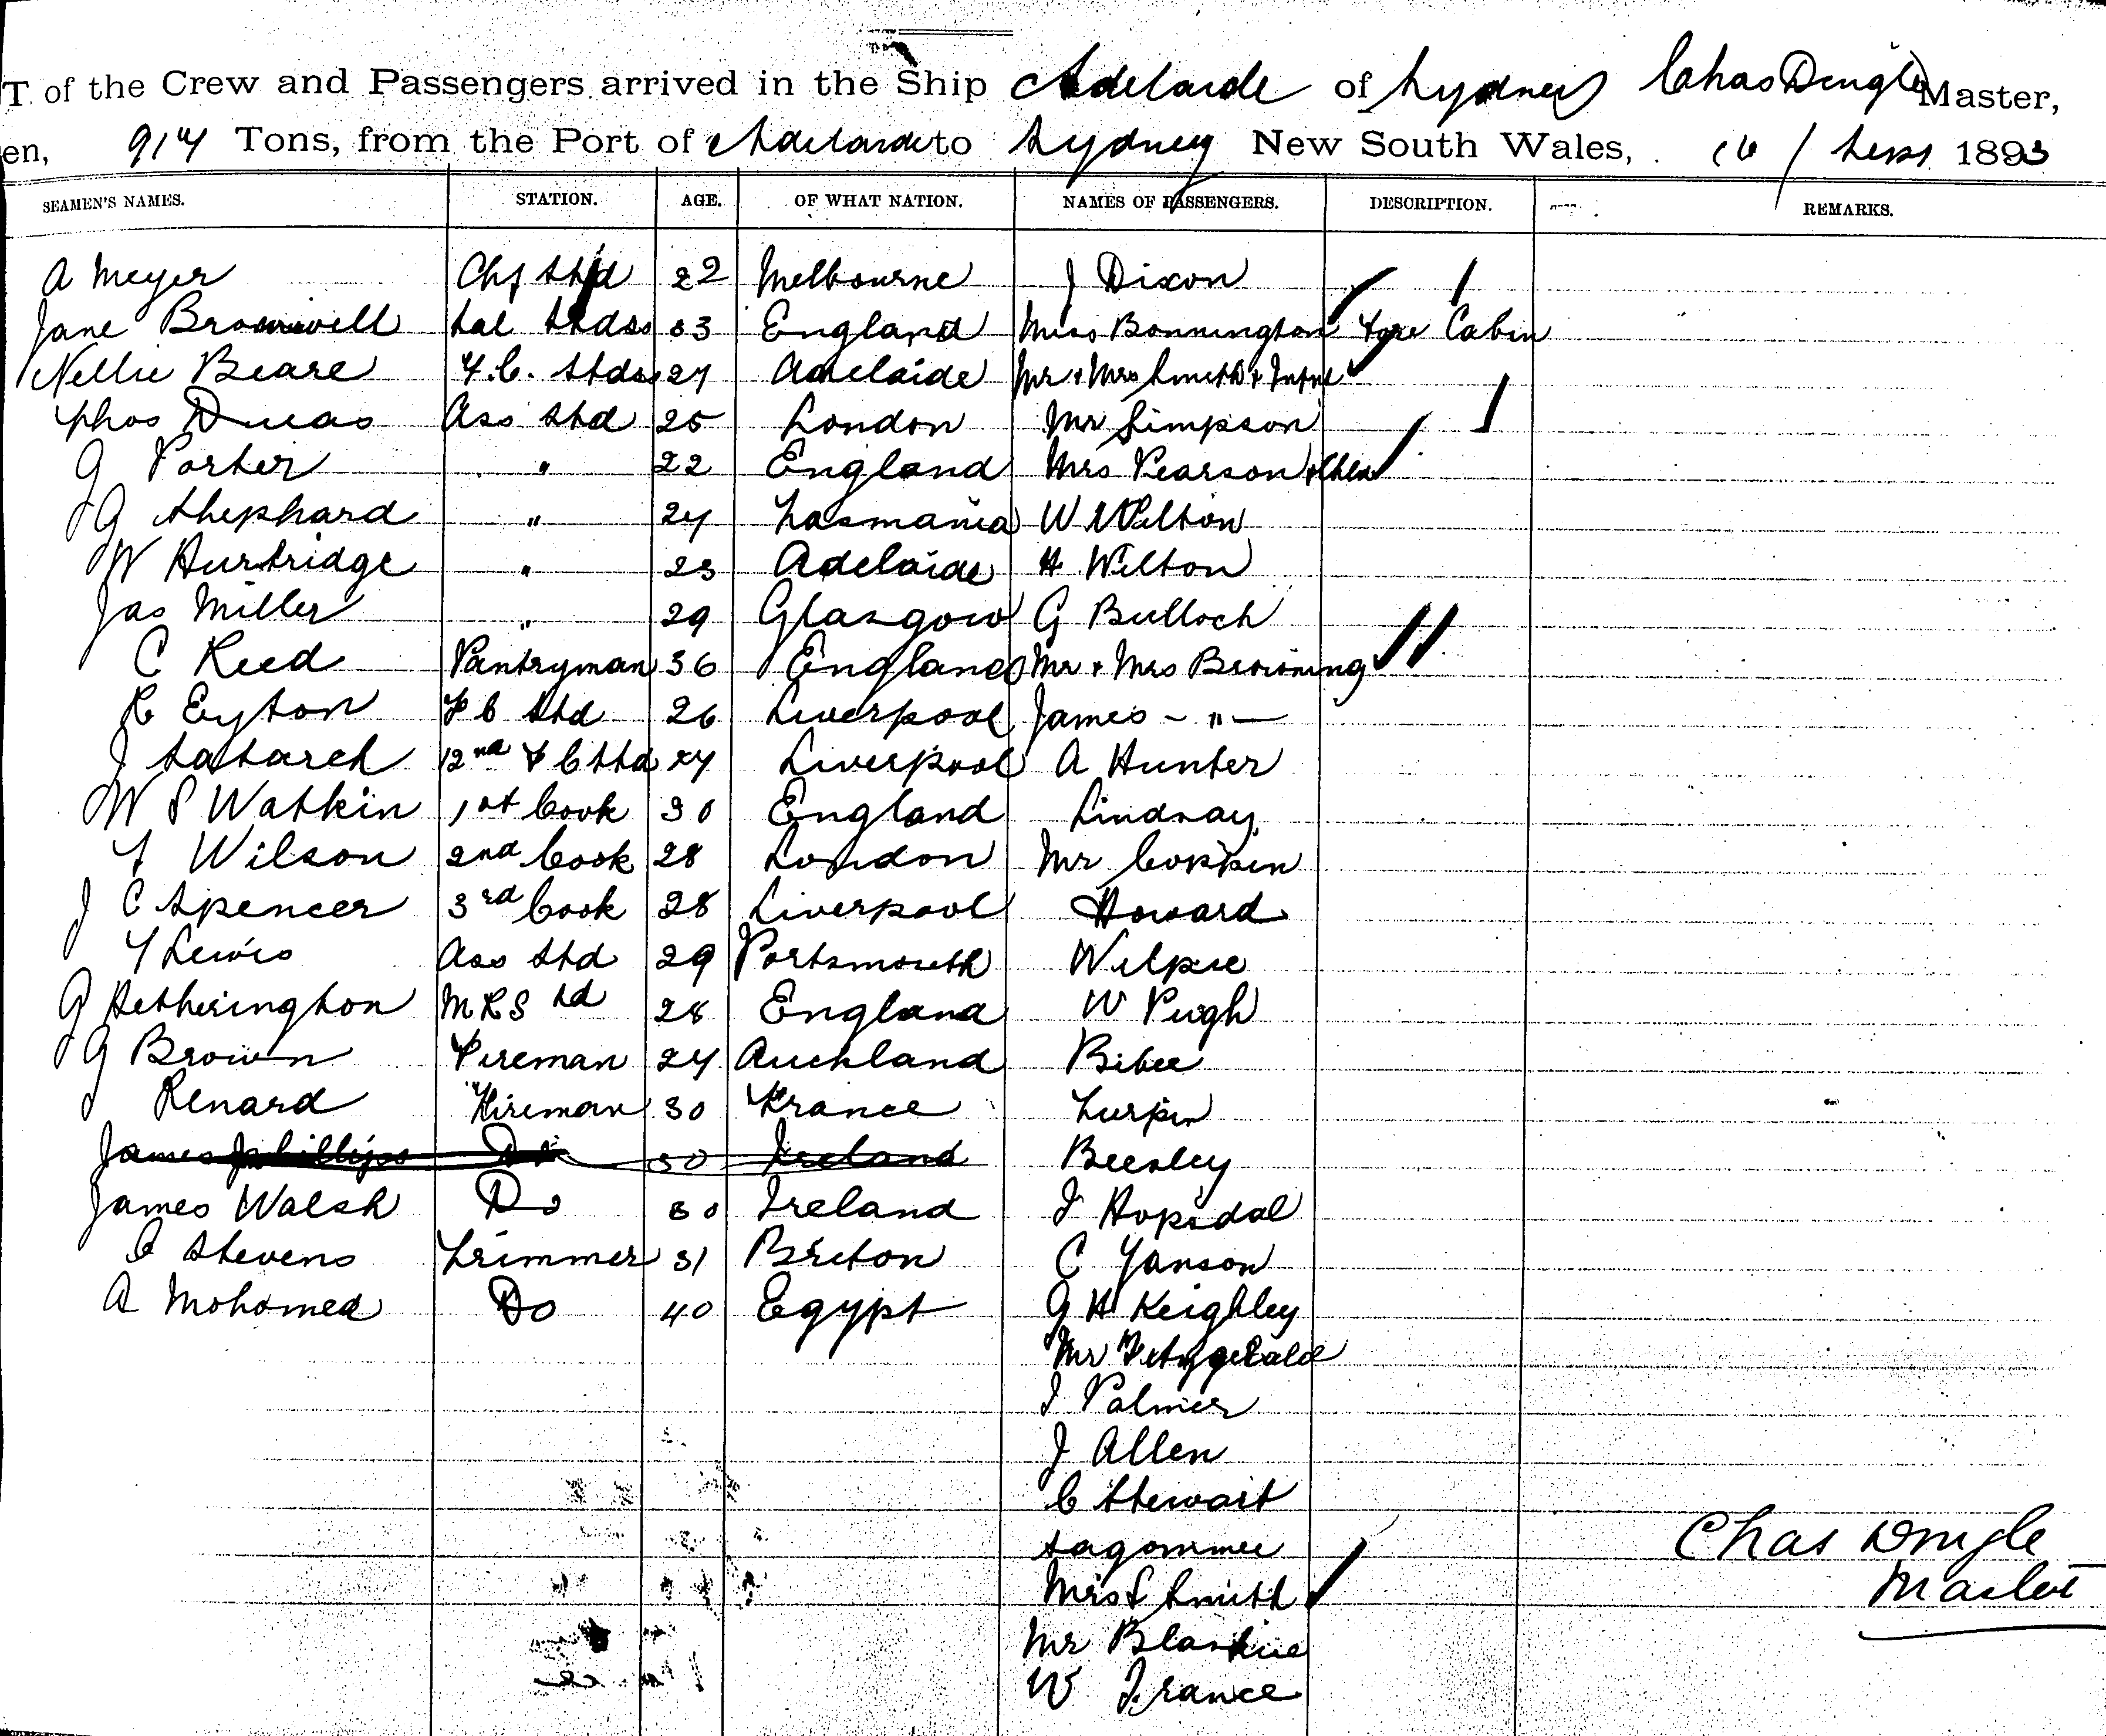 T of the Crew and Passengers arrived in the Ship Adelaide of Sydney Chas Dingle Master,
en, 914 Tons, from the Port of Adelaide to Sydney New South Wales, 16 / Sept 1893
SEAMEN'S NAMES. STATION. AGE. OF WHAT NATION. NAMES OF PASSENGERS. DESCRIPTION. REMARKS.
A Meyer Chf Std 22 Melbourne J Dixon
Jane Bromwell Sal Stdss 33 England Miss Bonnington Fore Cabin
Nellie Beare F.C. Stdss 27 Adelaide Mr & Mrs Smith & Infnt
Thos Ass Std 25 London Mr Simpson
G Porter " 22 England Mrs Pearson & Chld
G Shephard " 24 Tasmania W Wilton
W Hurtridge " 23 Adelaide H Wilton
Jas Miller " 29 Glasgow G Bulloch
C Reed Pantryman 36 England Mr & Mrs Browning
R Eyton F C Std 26 Liverpool James - " -
J 2nd F C Std 24 Liverpool A Hunter
W P Watkin 1st Cook 30 England Lindsay
F Wilson 2nd Cook 28 London Mr Coppin
J C Spencer 3rd Cook 28 Liverpool Howard
F Lewis Ass Std 29 Portsmouth Wilpie
G Hetherington M R Std 28 England W Pugh
G Brown Fireman 24 Auckland Bibee
Renard Fireman 30 France Turpin
James Phillips Do 30 Ireland Beesley
James Walsh Do 30 Ireland J Hopsdal
C Stevens Trimmer 31 Breton C Yanson
A Mohomed Do 40 Egypt G H Keighley
Mr Fitzgerald
J Palmer
J Allen
C Stewart
Sagommee
Mrs S Smith
Mr
W France
Chas Dingle
Master